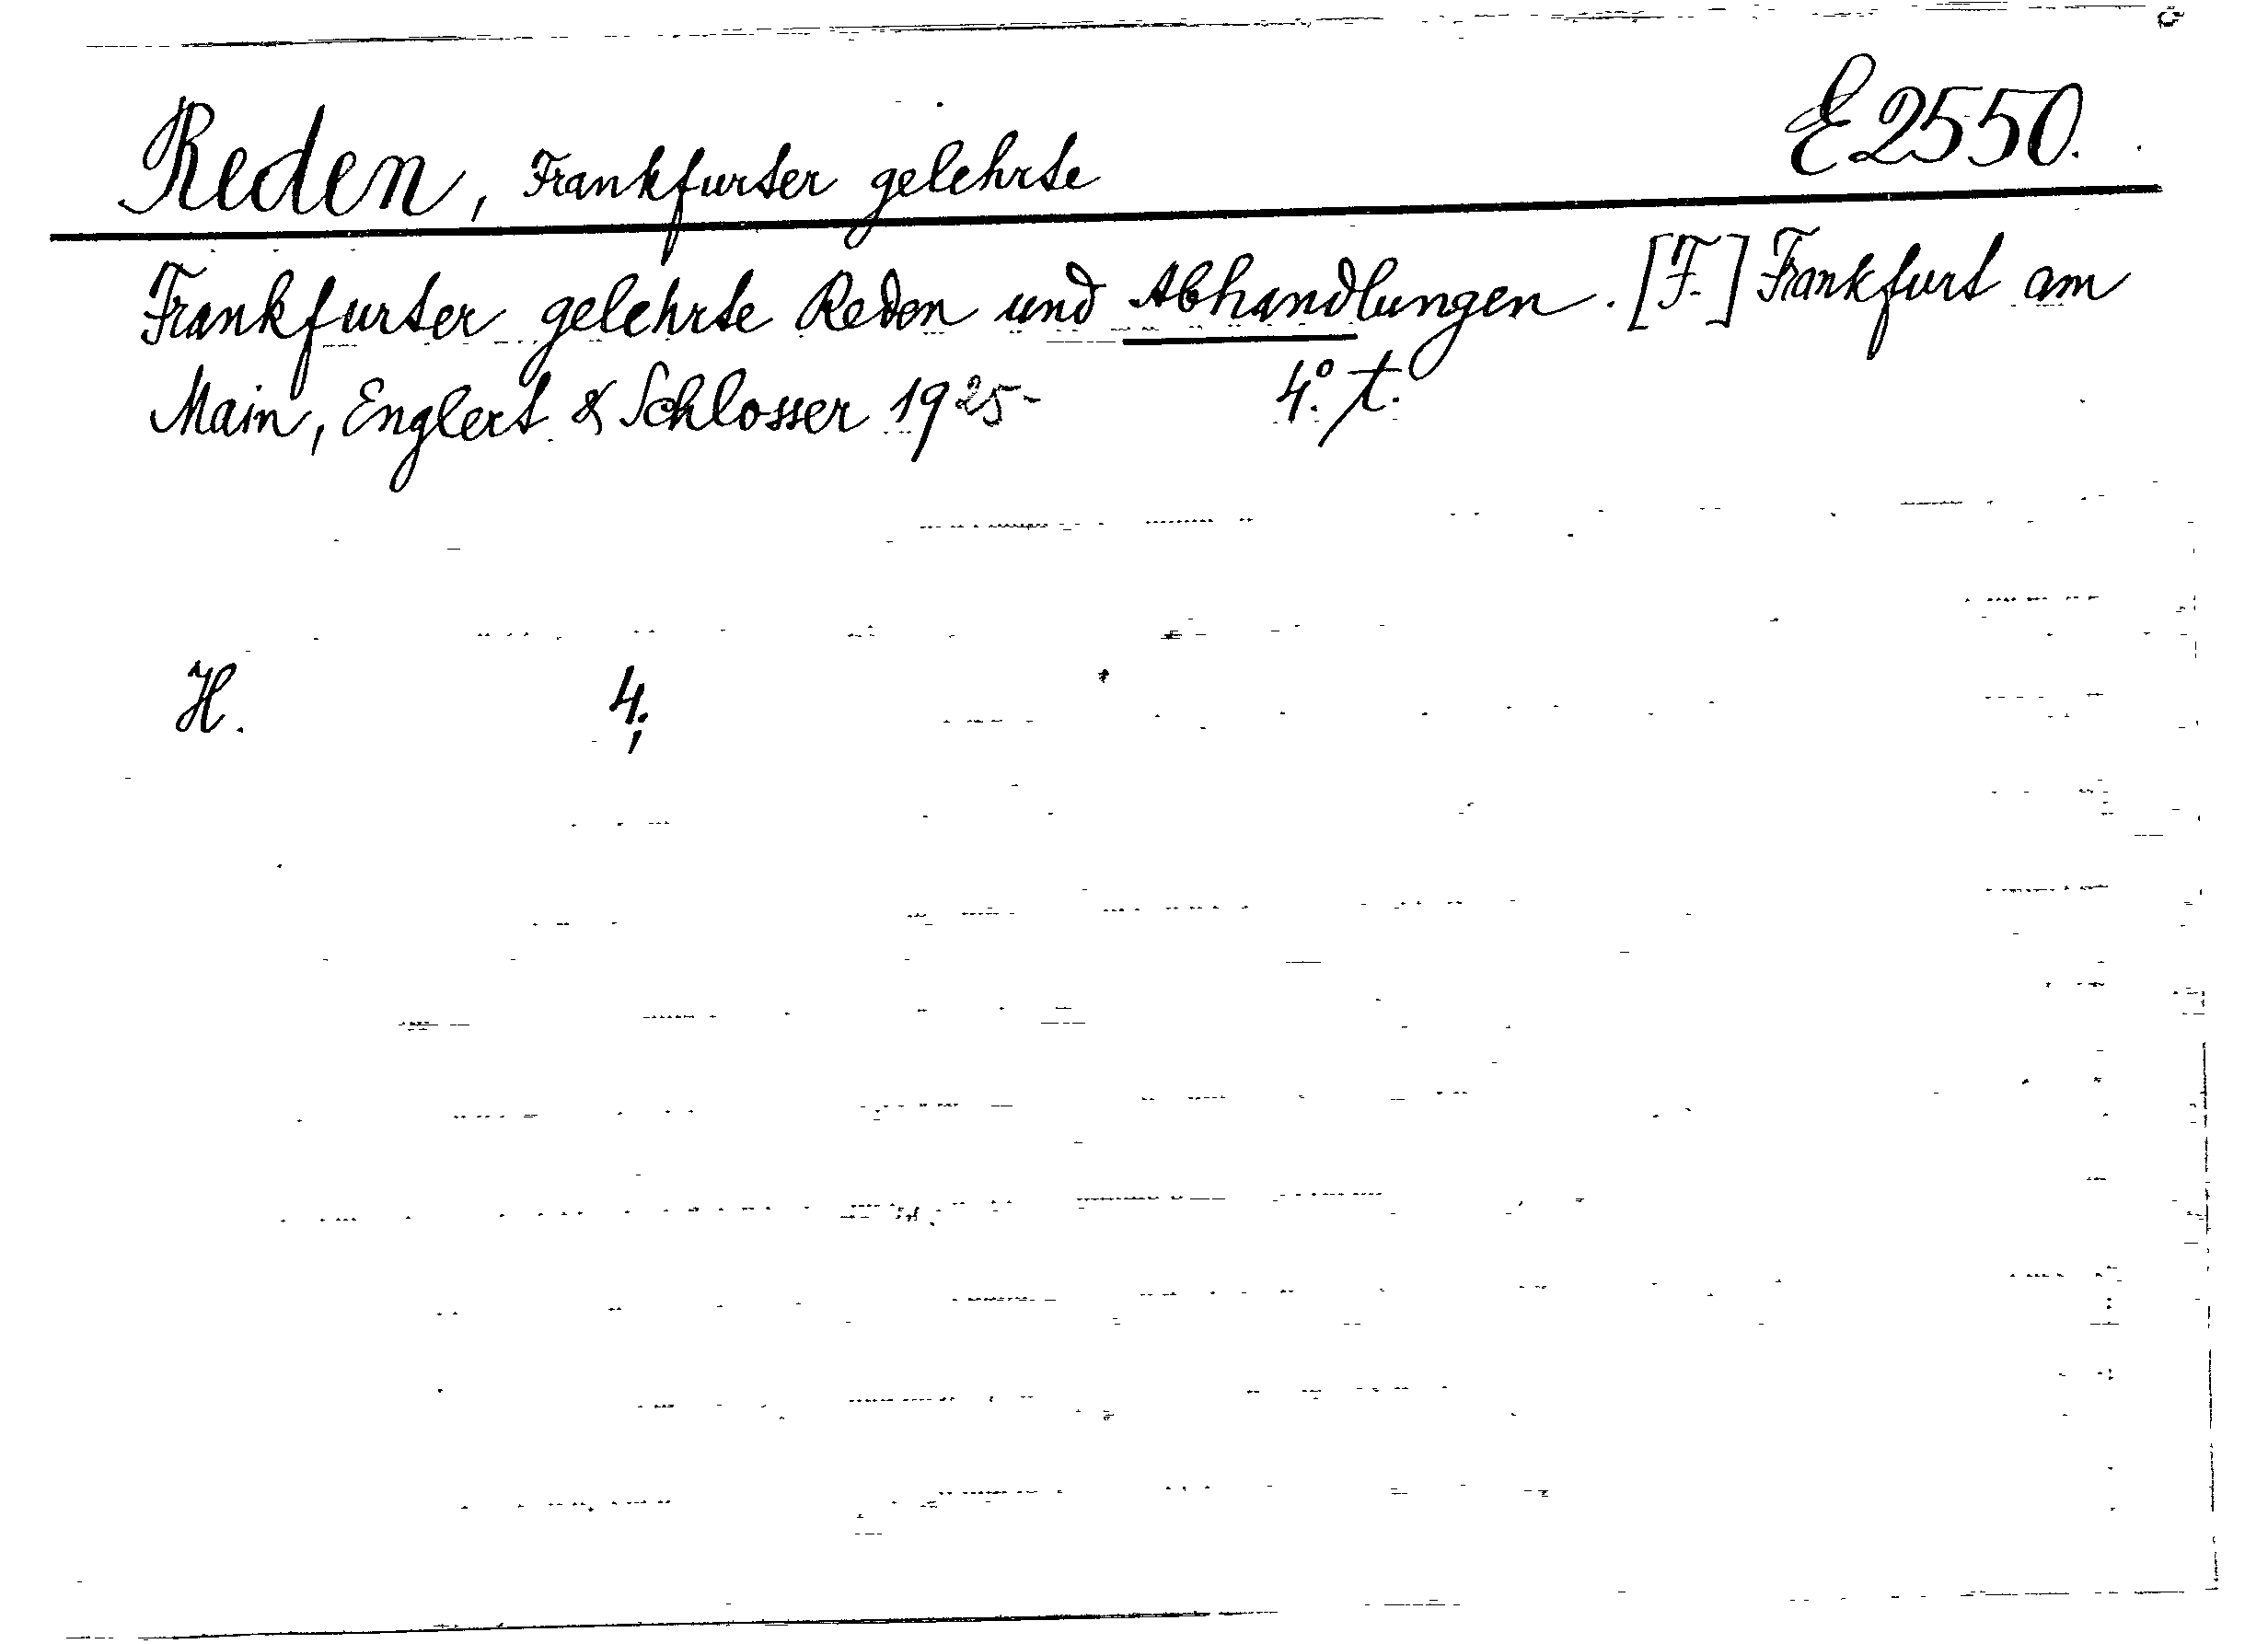 Reden, Frankfurter gelehrte E 2550.
Frankfurter gelehrte Reden und Abhandlungen. [F.] Frankfurt am
Main, Englert & Schlosser 1925- 4°. t.
H. 4.,